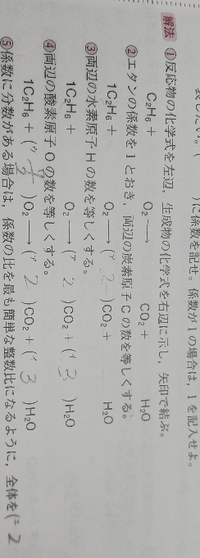 )に係数を記せ。係数が1の場合は,1を記入せよ。
解法 ①反応物の化学式を左辺,生成物の化学式を右辺に示し,矢印で結ぶ。
C₂H₆ + O₂ ⟶ CO₂ + H₂O
②エタンの係数を1とおき,両辺の炭素原子Cの数を等しくする。
1C₂H₆ + O₂ ⟶ (ア 2 )CO₂ + H₂O
③両辺の水素原子Hの数を等しくする。
1C₂H₆ + O₂ ⟶ (ア 2 )CO₂ + (イ 3 )H₂O
④両辺の酸素原子Oの数を等しくする。
1C₂H₆ + (ウ 7/2 )O₂ ⟶ (ア 2 )CO₂ + (イ 3 )H₂O
⑤係数に分数がある場合は,係数の比を最も簡単な整数比になるように,全体を(エ 2